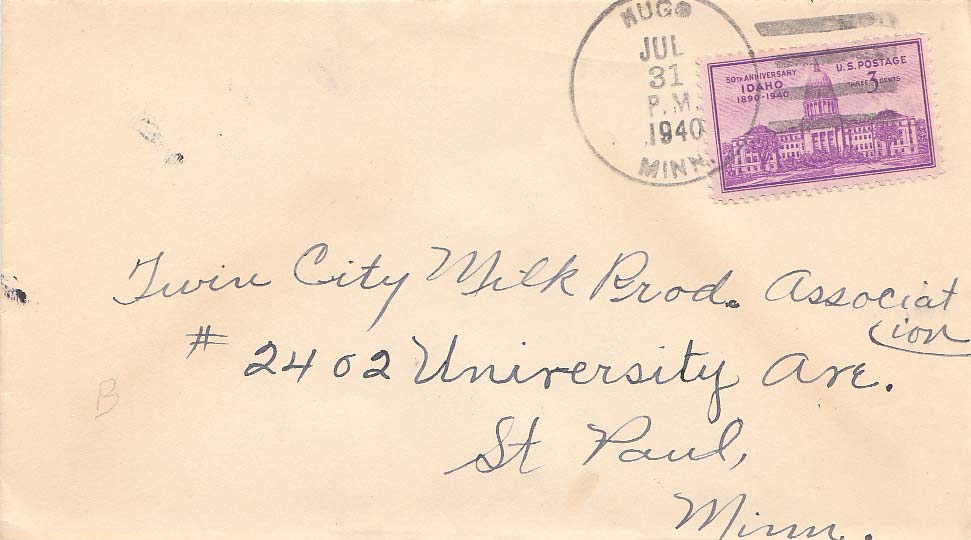 HUGO
JUL
31
P.M.
1940
MINN.
50TH ANNIVERSARY
IDAHO
1890-1940
U.S. POSTAGE
THREE 3 CENTS
Twin City Milk Prod. Associat
ion
# 2402 University Ave.
St Paul,
Minn.
B